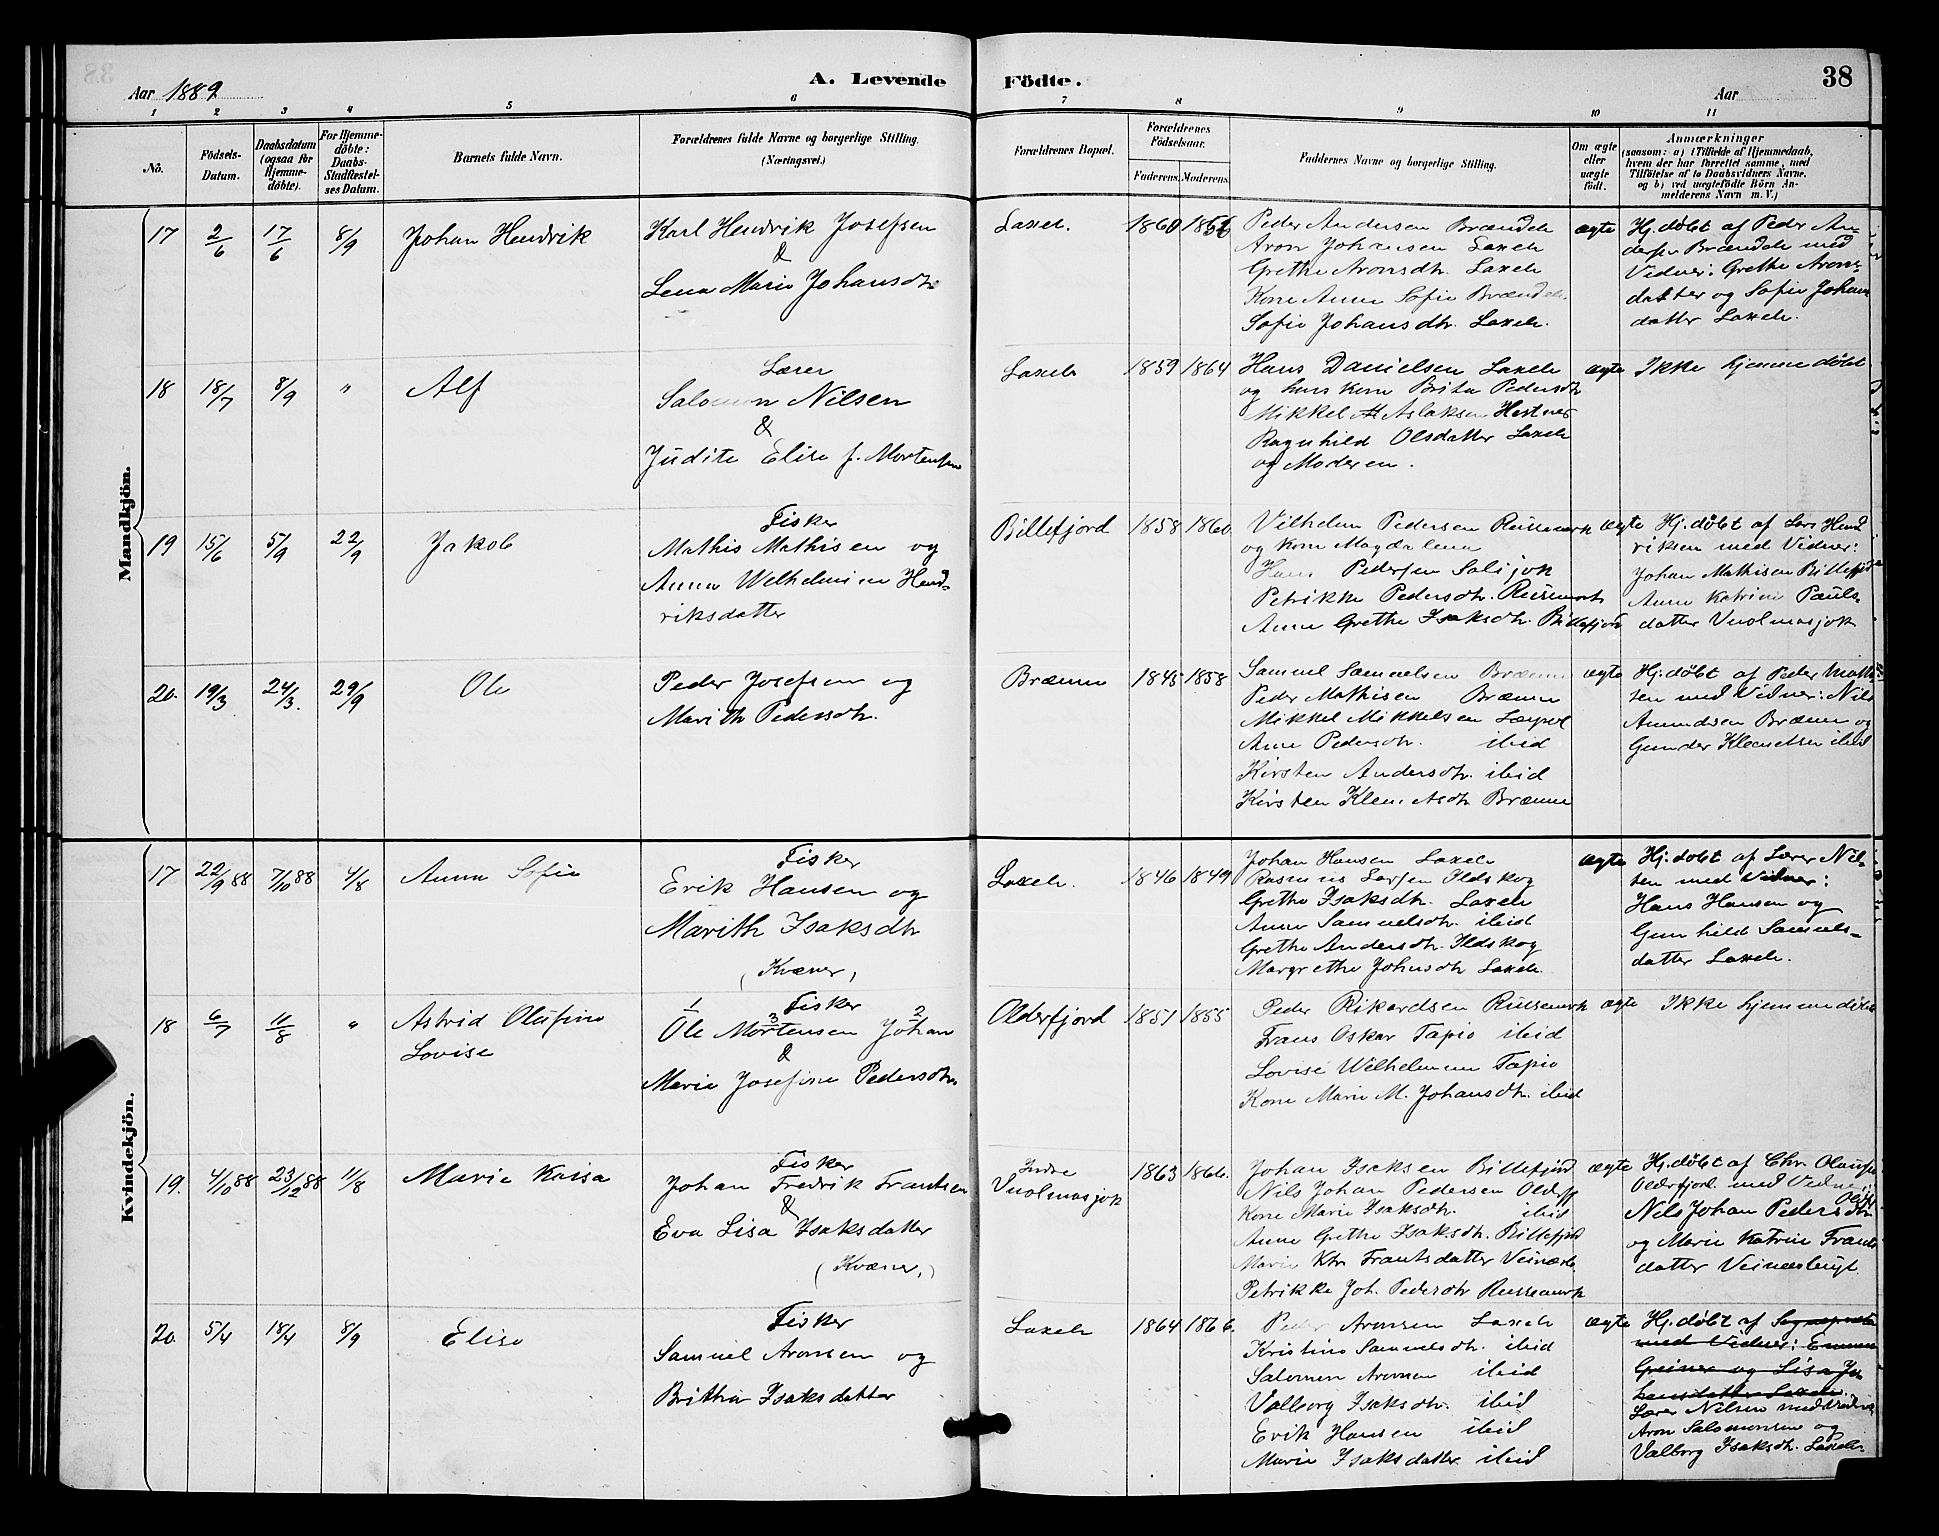 Aar 1889
A. Levende
Födte.
Aar
38
1 2 3 4 5 6 7 8 9 10 11
No.
Födsels-Datum.
Daabsdatum (ogsaa for Hjemme-döbte).
For Hjemme-döbte: Daabs-Stadfæstel-ses Datum.
Barnets fulde Navn.
Forældrenes fulde Navne og borgerlige Stilling. (Næringsvei.)
Forældrenes Bopæl.
Forældrenes Födselsaar.
Faderens. Moderens.
Faddernes Navne og borgerlige Stilling.
Om ægte eller uægte födt.
Anmærkninger
(saasom: a) i Tilfælde af Hjemmedaab,
hvem der har forrettet samme, med
Tilföielse af to Daabsvidners Navne,
og b) ved uægtefödte Börn An-
melderens Navn m. V.)
Mandkjön.
17 2/6 17/6 8/9 Johan Hendrik
Karl Hendrik Josefsen
&
Lena Marie Johansdtr
Laxelv. 1860 1856
Peder Andersen Brændelv
Aron Johansen Laxelv
Grethe Aronsdtr. Laxelv
Kone Anne Sofie Brændelv
Sofie Johansdtr. Laxelv.
ægte
Hj. døbt af Peder An-
dersen Brændelv med
Vidner: Grethe Arons-
datter og Sofie Johans
datter Laxelv.
18 18/7 8/9 " Alf
Lærer
Salomon Nilsen
&
Judite Elise f. Mortensen
Laxelv 1859 1864
Hans Danielsen Laxelv
og hans kone Brita Pedersdtr
Mikkel Aslaksen Hestnes
Ragnhild Olsdatter Laxelv
og Moderen.
ægte
Ikke hjemmedøbt
19 15/6 5/9 22/9 Jakob
Fisker
Mathis Mathisen og
Anna Welhelmine Hend-
riksdatter
Billefjord 1858 1860
Vilhelm Pedersen Russemark
og kone Magdalena
Hans Pedersen Salsjok
Petrikke Pedersdtr. Russemark
Anne Grethe Isaksdtr. Billefjord
ægte
Hj. døbt af Lars Hend
riksen med Vidner:
Johan Mathisen Billefjord
Anne Katrine Pauls-
datter Vuolmasjok
20. 19/3 24/3. 29/9 Ole
Peder Josefsen og
Marith Pedersdtr.
Brænne 1845 1858
Samuel Samuelsen Brænne
Peder Mathisen Brænne
Mikkel Mikkelsen
Anne Pedersdtr. ibid
Kirsten Andersdtr. ibid
Kirsten Klemetsdtr Brænne
ægte
Hj. døbt af Peder Mathi
sen med Vidner: Nils
Amundsen Brænne og
Gunder Klemetsen ibid
Kvindekjön.
17 22/9 88 7/10 88 4/8 Anna Sofie
Fisker
Erik Hansen og
Marith Isaksdtr
(Kvæner)
Laxelv. 1846 1849
Johan Hansen Laxelv
Rasmus Larsen Ildskog
Grethe Isaksdtr. Laxelv
Anne Samuelsdtr. ibid
Grethe Andersdtr. Ildskog
Margrethe Johnsdtr Laxelv.
ægte
Hj. døbt af Lærer Nil-
sen med Vidner:
Hans Hansen og
Gunhild Samuels-
datter Laxelv.
18 6/7 11/8 " Astrid Olufine
Lovise
1 Fisker 2
Ole Mortensen Johan
3
&
Marie Josefine Pedersdtr.
Olderfjord 1851 1855
Peder Rikardsen Russemark
Frans Oskar Tapio ibid
Lovise Wilhelmine Tapio
Kone Marie M. Johansdtr. ibid
ægte
Ikke hjemmedøbt
19. 4/10 88 23/12 88 11/8 Marie Kaisa
Fisker
Johan Fredrik Frantsen
&
Eva Lisa Isaksdatter
(Kvæner)
Indre
Vuolmasjok
1863 1866.
Johan Isaksen Billefjord
Nils Johan Pedersen Olderfj
Kone Marie Isaksdtr. ibid
Anne Grethe Isaksdtr. Billefjord
Marie Ktr. Frantsdatter Veinæsb.
Petrikke Joh. Pedersdtr Russemark
ægte
Hj. døbt af Chr. Olaussen
Olderfjord. med Vidner:
Nils Johan Pedersen Oldfj
og Marie Katrine Frants
datter Veinæsbugt
20. 5/4 18/4 8/9 Elise
Fisker
Samuel Aronsen og
Britha Isaksdatter
Laxelv 1864 1866.
Peder Aronsen Laxelv
Kristine Samuelsdtr. ibid
Salomon Aronsen ibid
Valborg Isaksdtr. ibid
Erik Hansen ibid
Marie Isaksdatter ibid
ægte
Hj. døbt af Sognepresten
med Vidner: Emma
Greiner og Lisa Jo
hansdatter Laxelv.
Lærer Nilsen med Vidner
Aron Salomonsen og
Valborg Isaksdtr. Laxelv